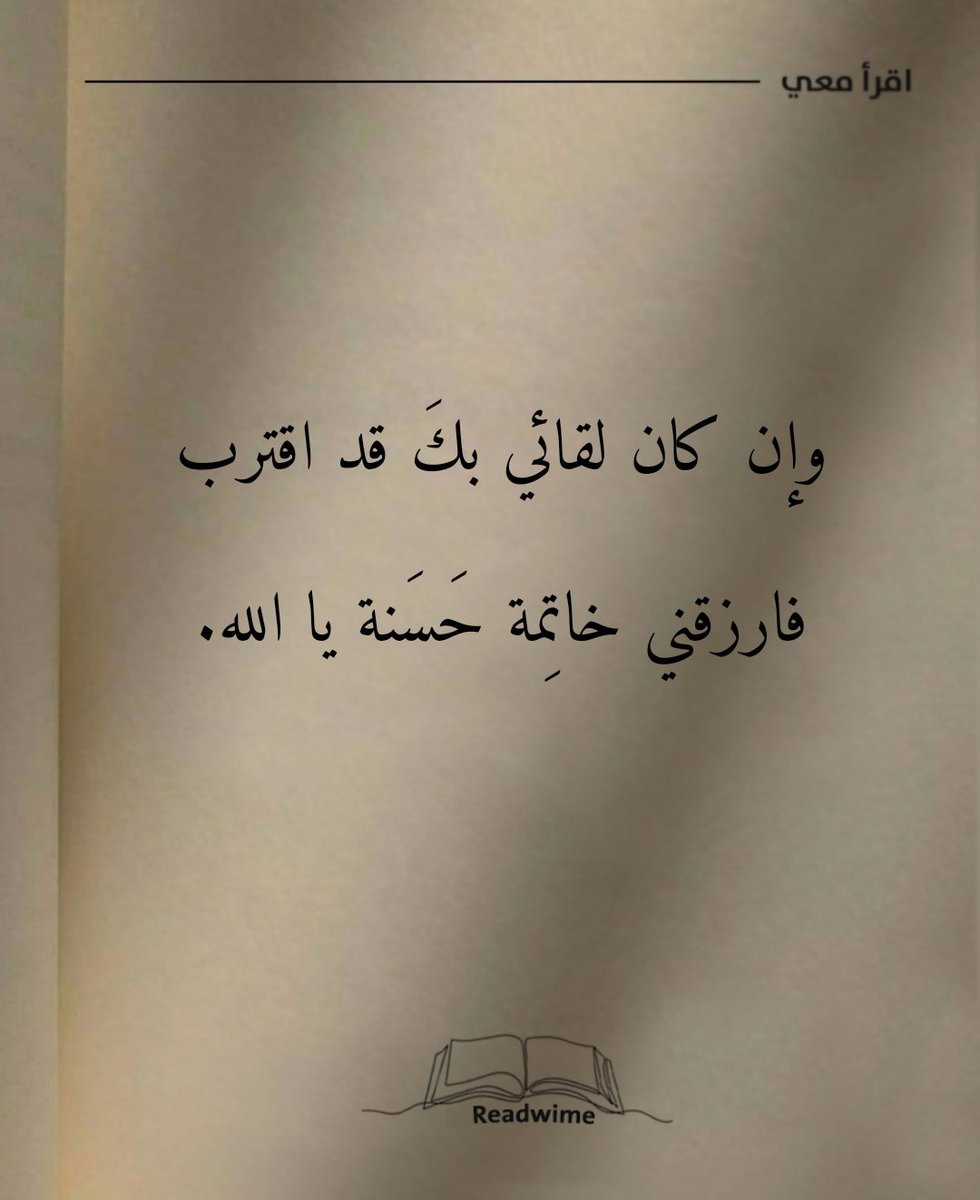 اقرأ معي
وإن كان لقائي بكَ قد اقترب
فارزقني خاتِمة حَسَنة يا الله.
Readwime